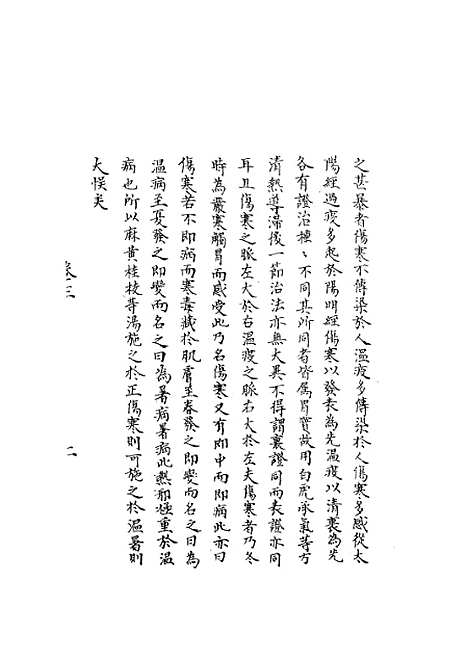 之甚暴者傷寒不傳染於人溫疫多傳染於人傷寒多感從太
陽經過疫多起於陽明經傷寒以發表為先溫疫以清裏為先
各有證治種〻不同其所同者皆屬胃實故用白虎承氣等方
清熱導滯後一節治法亦無大異不得謂裏證同而表證亦同
耳且傷寒之脈左大於右溫疫之脈右大於左夫傷寒者乃冬
時為嚴寒觸冒而感受此乃名傷寒又有即中而即病此亦曰
傷寒若不即病而寒毒藏於肌膚至春發之即變而名之曰為
溫病至夏發之即變而名之曰為暑病暑病此熱極重於溫
病也所以麻黃桂枝等湯施之於正傷寒則可施之於溫暑則
大悮矣
卷三
二